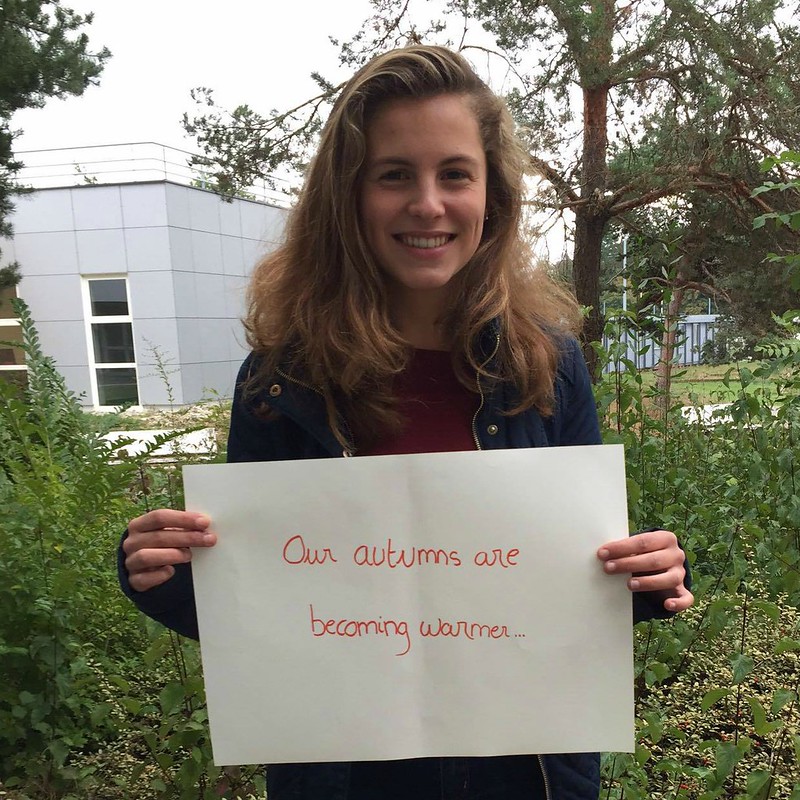 Our autumns are
becoming warmer...